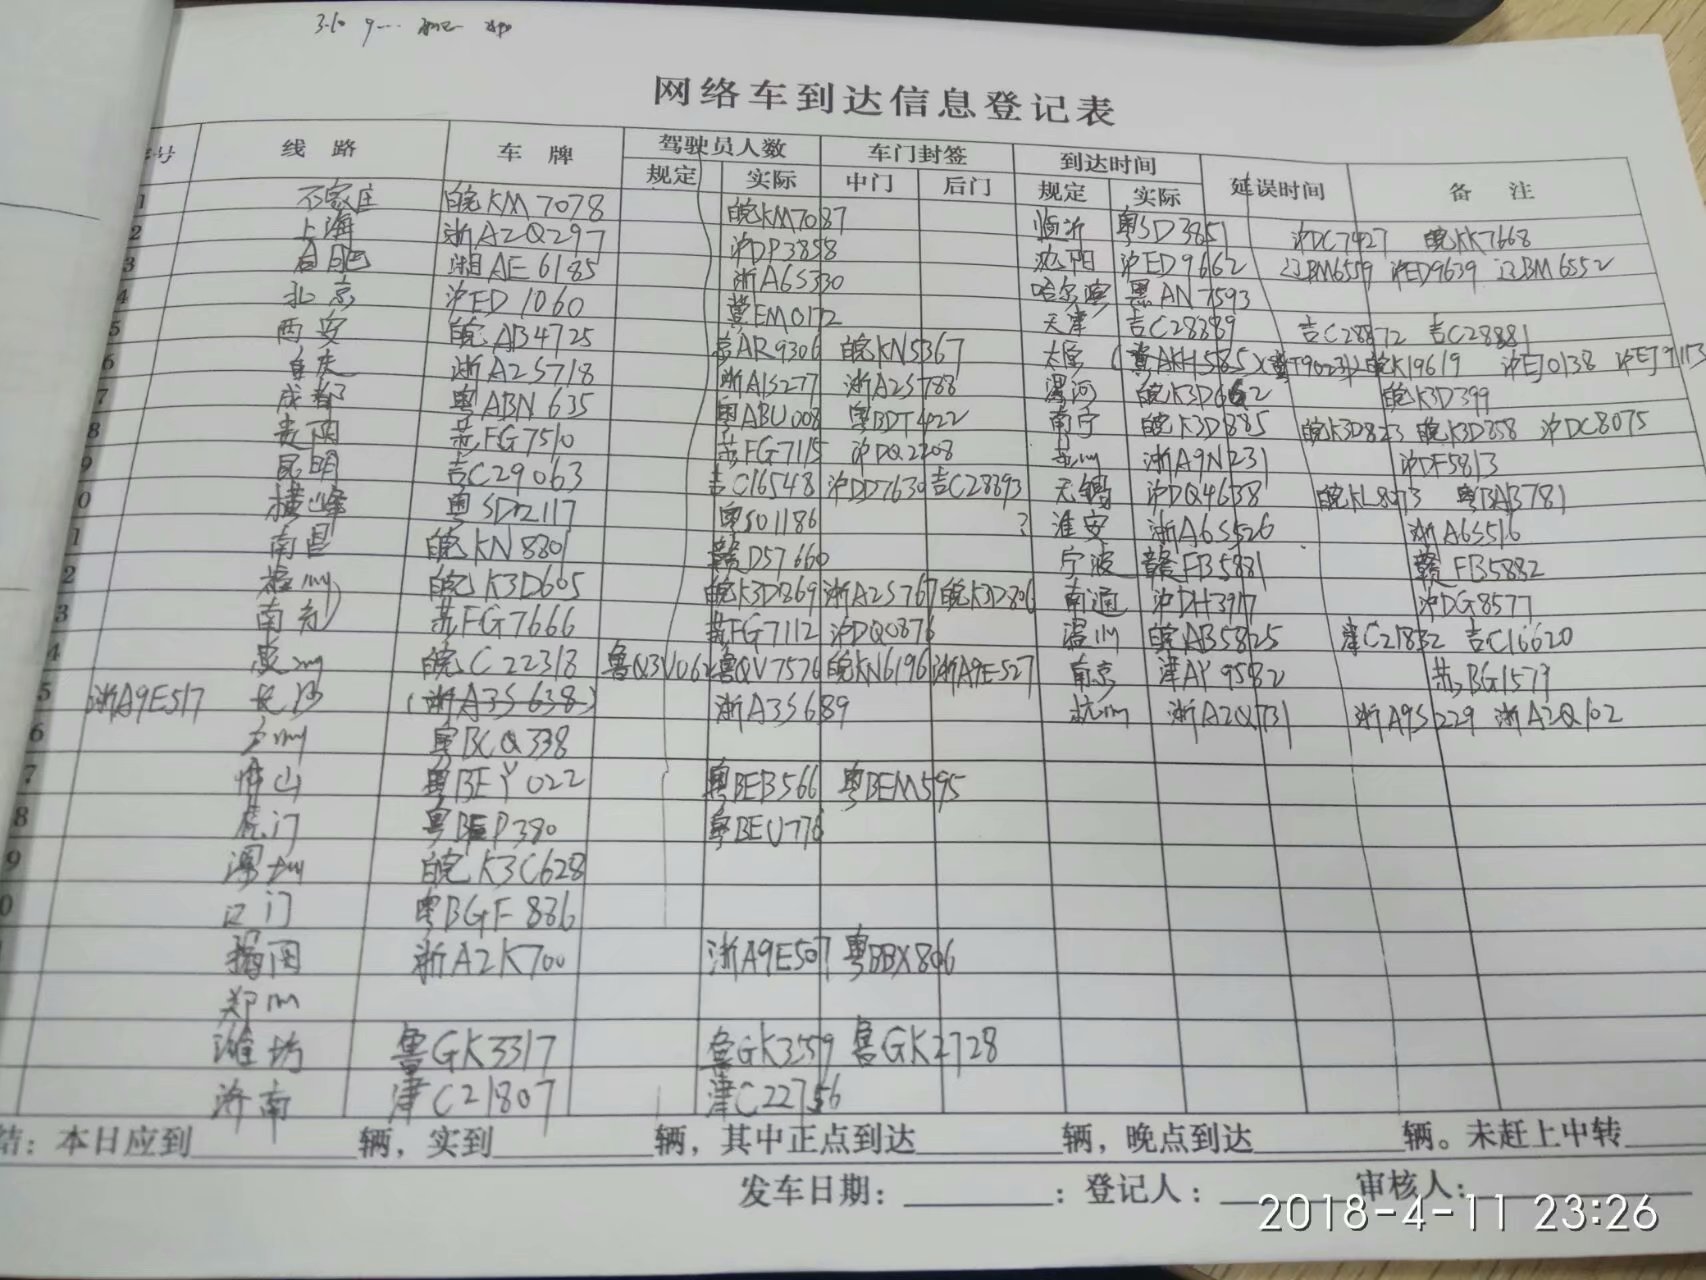 网络车到达信息登记表
线路 车牌 驾驶员人数 车门封签 到达时间 延误时间 备注
规定 实际 中门 后门 规定 实际
1 石家庄 皖KM7078 皖KM7087 临沂 粤SD3851 沪DC7427 皖KK7668
2 上海 浙A2Q297 沪DP3858 沈阳 沪ED9662 辽BM6559 沪ED9639 辽BM6552
3 合肥 湘AE6185 浙A6S330 哈尔滨 黑AN7593
4 北京 沪ED1060 冀EM0172 天津 吉C28389 吉C28872 吉C28881
5 西安 皖AB4725 京AR9306 皖KN5367 太原 (冀AKH585) 皖K19619 沪EJ0138
6 重庆 浙A2S718 浙A1S277 浙A2S788 漯河 皖K3D662 皖K3D399
7 成都 粤ABN635 粤ABU008 粤BDT422 南宁 皖K3D885 皖K3D823 皖K3D858 沪DC8075
8 贵阳 苏FG7510 苏FG7115 沪DQ2208 苏州 浙A9N231 沪DF5813
9 昆明 吉C29063 吉C16548 沪DD7630 吉C28893 无锡 沪DQ4638 皖KL8073 粤BAB781
0 横峰 粤SD2117 粤S01186 ? 淮安 浙A6S526 浙A6S516
1 南昌 皖KN8801 赣D57660 宁波 赣FB5881 赣FB5882
2 福州 皖K3D605 皖K3D869 浙A2S767 皖K3D806 南通 沪DH3917 沪DG8577
3 南充 苏FG7666 苏FG7112 沪DQ0876 温州 皖AB5825 津C21832 吉C16620
4 皖C22318 鲁Q3V062 鲁QV7576 皖KN6196 浙A9E527 南京 津AY9582 苏BG1579
5 浙A9E517 长沙 (浙A3S638) 浙A3S689 杭州 浙A2Q731 浙A9S229 浙A2Q102
6 广州 粤BCQ338
7 佛山 粤BEY022 粤BEB566 粤BEM595
8 虎门 粤BEP380 粤BEU776
9 深圳 皖K3C628
0 江门 粤BGF886
揭阳 浙A2K700 浙A9E507 粤BBX806
郑州
潍坊 鲁GK3317 鲁GK3259 鲁GK2728
济南 津C21807 津C22756
结：本日应到 辆，实到 辆，其中正点到达 辆，晚点到达 辆。未赶上中转
发车日期： ：登记人： 审核人：
2018-4-11 23:26